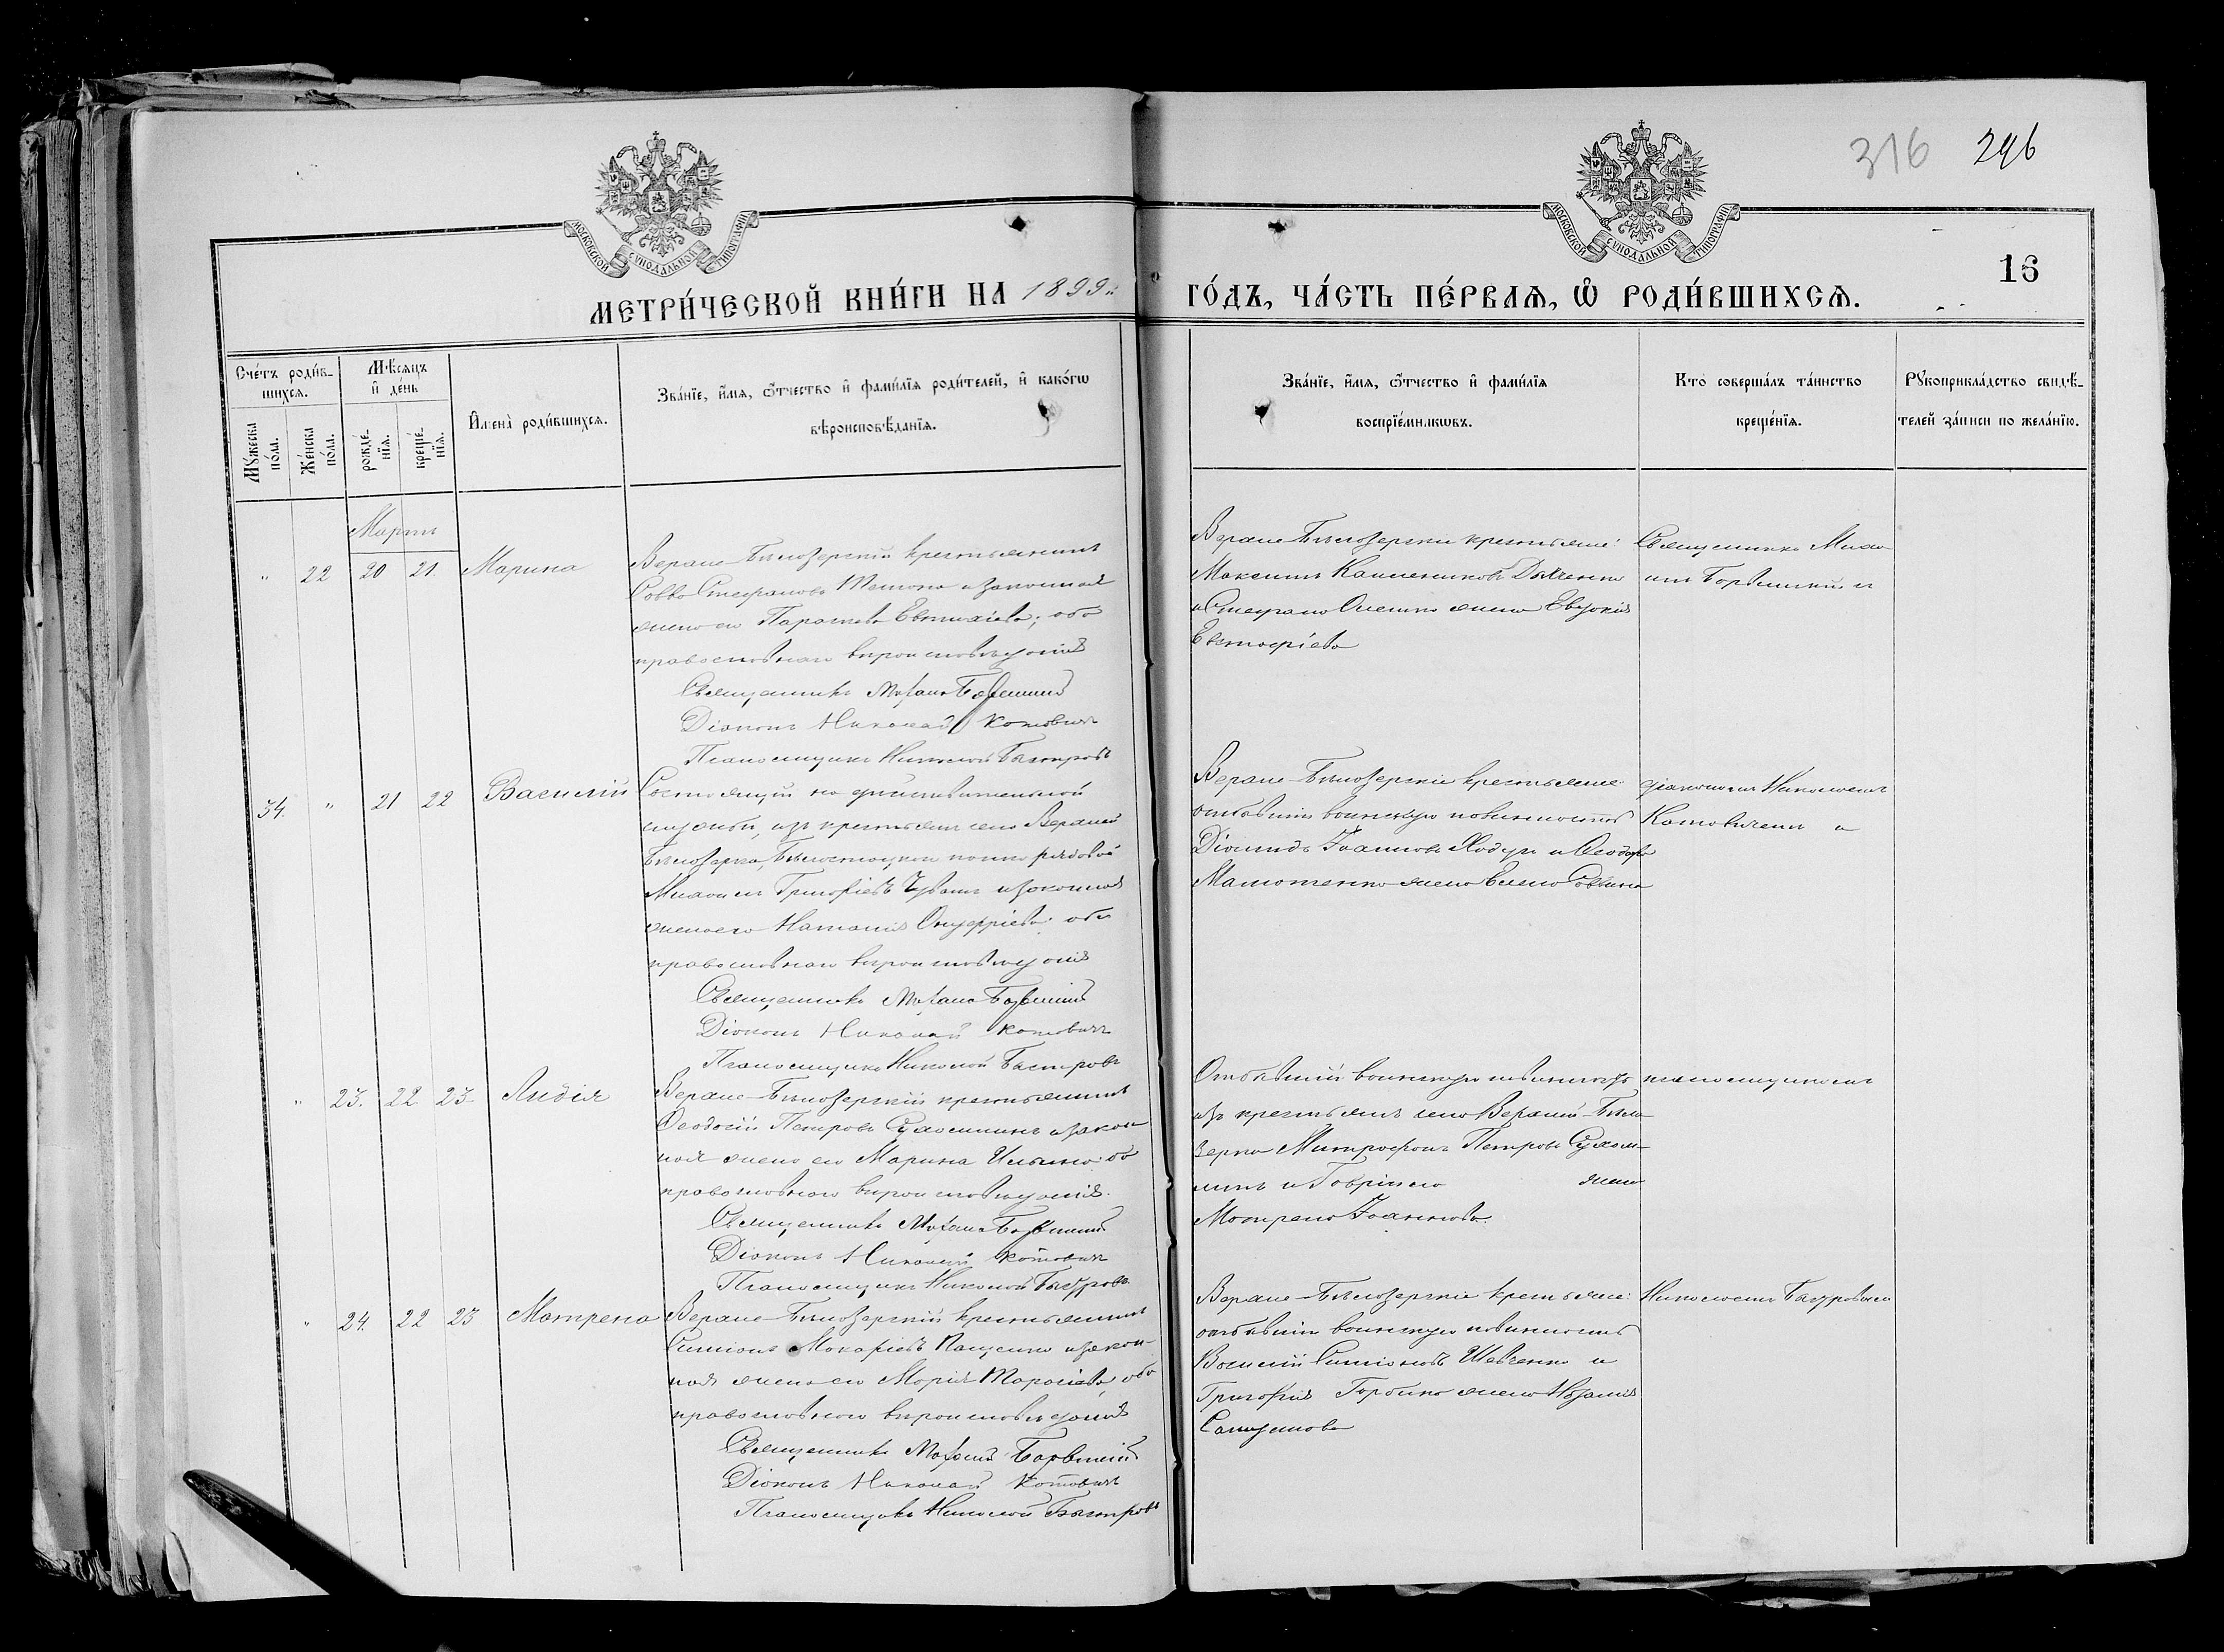 316 246
МОСКОВСКОЙ СУНОДАЛЬНОЙ ТИПОГРАФІИ
МОСКОВСКОЙ СУНОДАЛЬНОЙ ТИПОГРАФІИ
16
МЕТРИ́ЧЕСКОЙ КНИ́ГИ НА 1899 ГО́ДЪ, ЧА́СТЬ ПЕ́РВАЯ, Ѽ РОДИ́ВШИХСѦ.
Сче́тъ роди́в-
шихсѧ.
Мꙋжеска по́ла.
Же́нска по́ла.
Мѣ́сѧцъ и҆ де́нь
рожде́-нїѧ.
креще́-нїѧ.
И҆мена̀ роди́вшихсѧ.
Зва́нїе, и҆́мѧ, ѻ҆́тчество и҆ фами́лїѧ роди́телей, и҆ како́гѡ
вѣроисповѣ́данїѧ.
Зва́нїе, и҆́мѧ, ѻ҆́тчество и҆ фами́лїѧ
воспрїе́мникѡвъ.
Кто̀ соверша́лъ та́инство
креще́нїѧ.
Рꙋкоприкла́дство свидѣ́-
телей за́писи по жела́нїю.
Мартъ
" 22 20 21. Марина
Верхне-Бѣлозерскій крестьянинъ
Савва Стефановъ и законная
жена его Параскева Евтихіева; оба
православнаго вѣроисповѣданія
Священникъ Михаилъ
Діаконъ Николай Котовичъ
Псаломщикъ Николай Быстровъ
Верхне-Бѣлозерскіе крестьяне:
Максимъ Дьяченко
и Стефана жена Евдокія
Священникъ Миха-
илъ и
34. " 21 22 Василій
Состоящій на дѣйствительной
службѣ, изъ крестьянъ села Верхней
Бѣлозерки, полка рядовой
Михаилъ Григорьевъ и законная
жена его Наталія Онуфріева; оба
православнаго вѣроисповѣданія
Священникъ Михаилъ
Діаконъ Николай Котовичъ
Псаломщикъ Николай Быстровъ
Верхне-Бѣлозерскіе крестьяне:
отбывшій воинскую повинность
Діомидъ Іоанновъ и Ѳеодора
жена Саввина
діакономъ Николаемъ
Котовичемъ и
" 23. 22 23 Лидія
Верхне-Бѣлозерскій крестьянинъ
Ѳеодосій Петровъ Сухоминъ и закон
ная жена его Марина Ильина; оба
православнаго вѣроисповѣданія.
Священникъ Михаилъ
Діаконъ Николай Котовичъ
Псаломщикъ Николай Быстровъ
Отбывшій воинскую повинность
изъ крестьянъ села Верхней-Бѣло-
зерки Митрофанъ Петровъ
и Гавріила жена
Матрена Іоаннова.
псаломщикомъ
" 24. 22 23 Матрена
Верхне-Бѣлозерскій крестьянинъ
Симеонъ Макаріевъ Пащенко и закон-
ная жена его Марія Тарасіева, оба
православнаго вѣроисповѣданія
Священникъ Михаилъ
Діаконъ Николай Котовичъ
Псаломщикъ Николай Быстровъ
Верхне-Бѣлозерскіе крестьяне:
отбывшій воинскую повинность
Василій Симеоновъ Шевченко и
Григорія жена
Николаемъ Быстровымъ